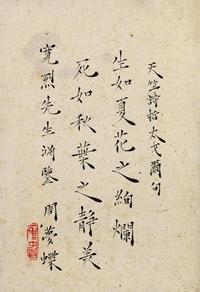 天竺詩哲太戈爾句
生如夏花之絢爛
死如秋葉之靜美
寬烈先生鴻鑒 周夢蝶